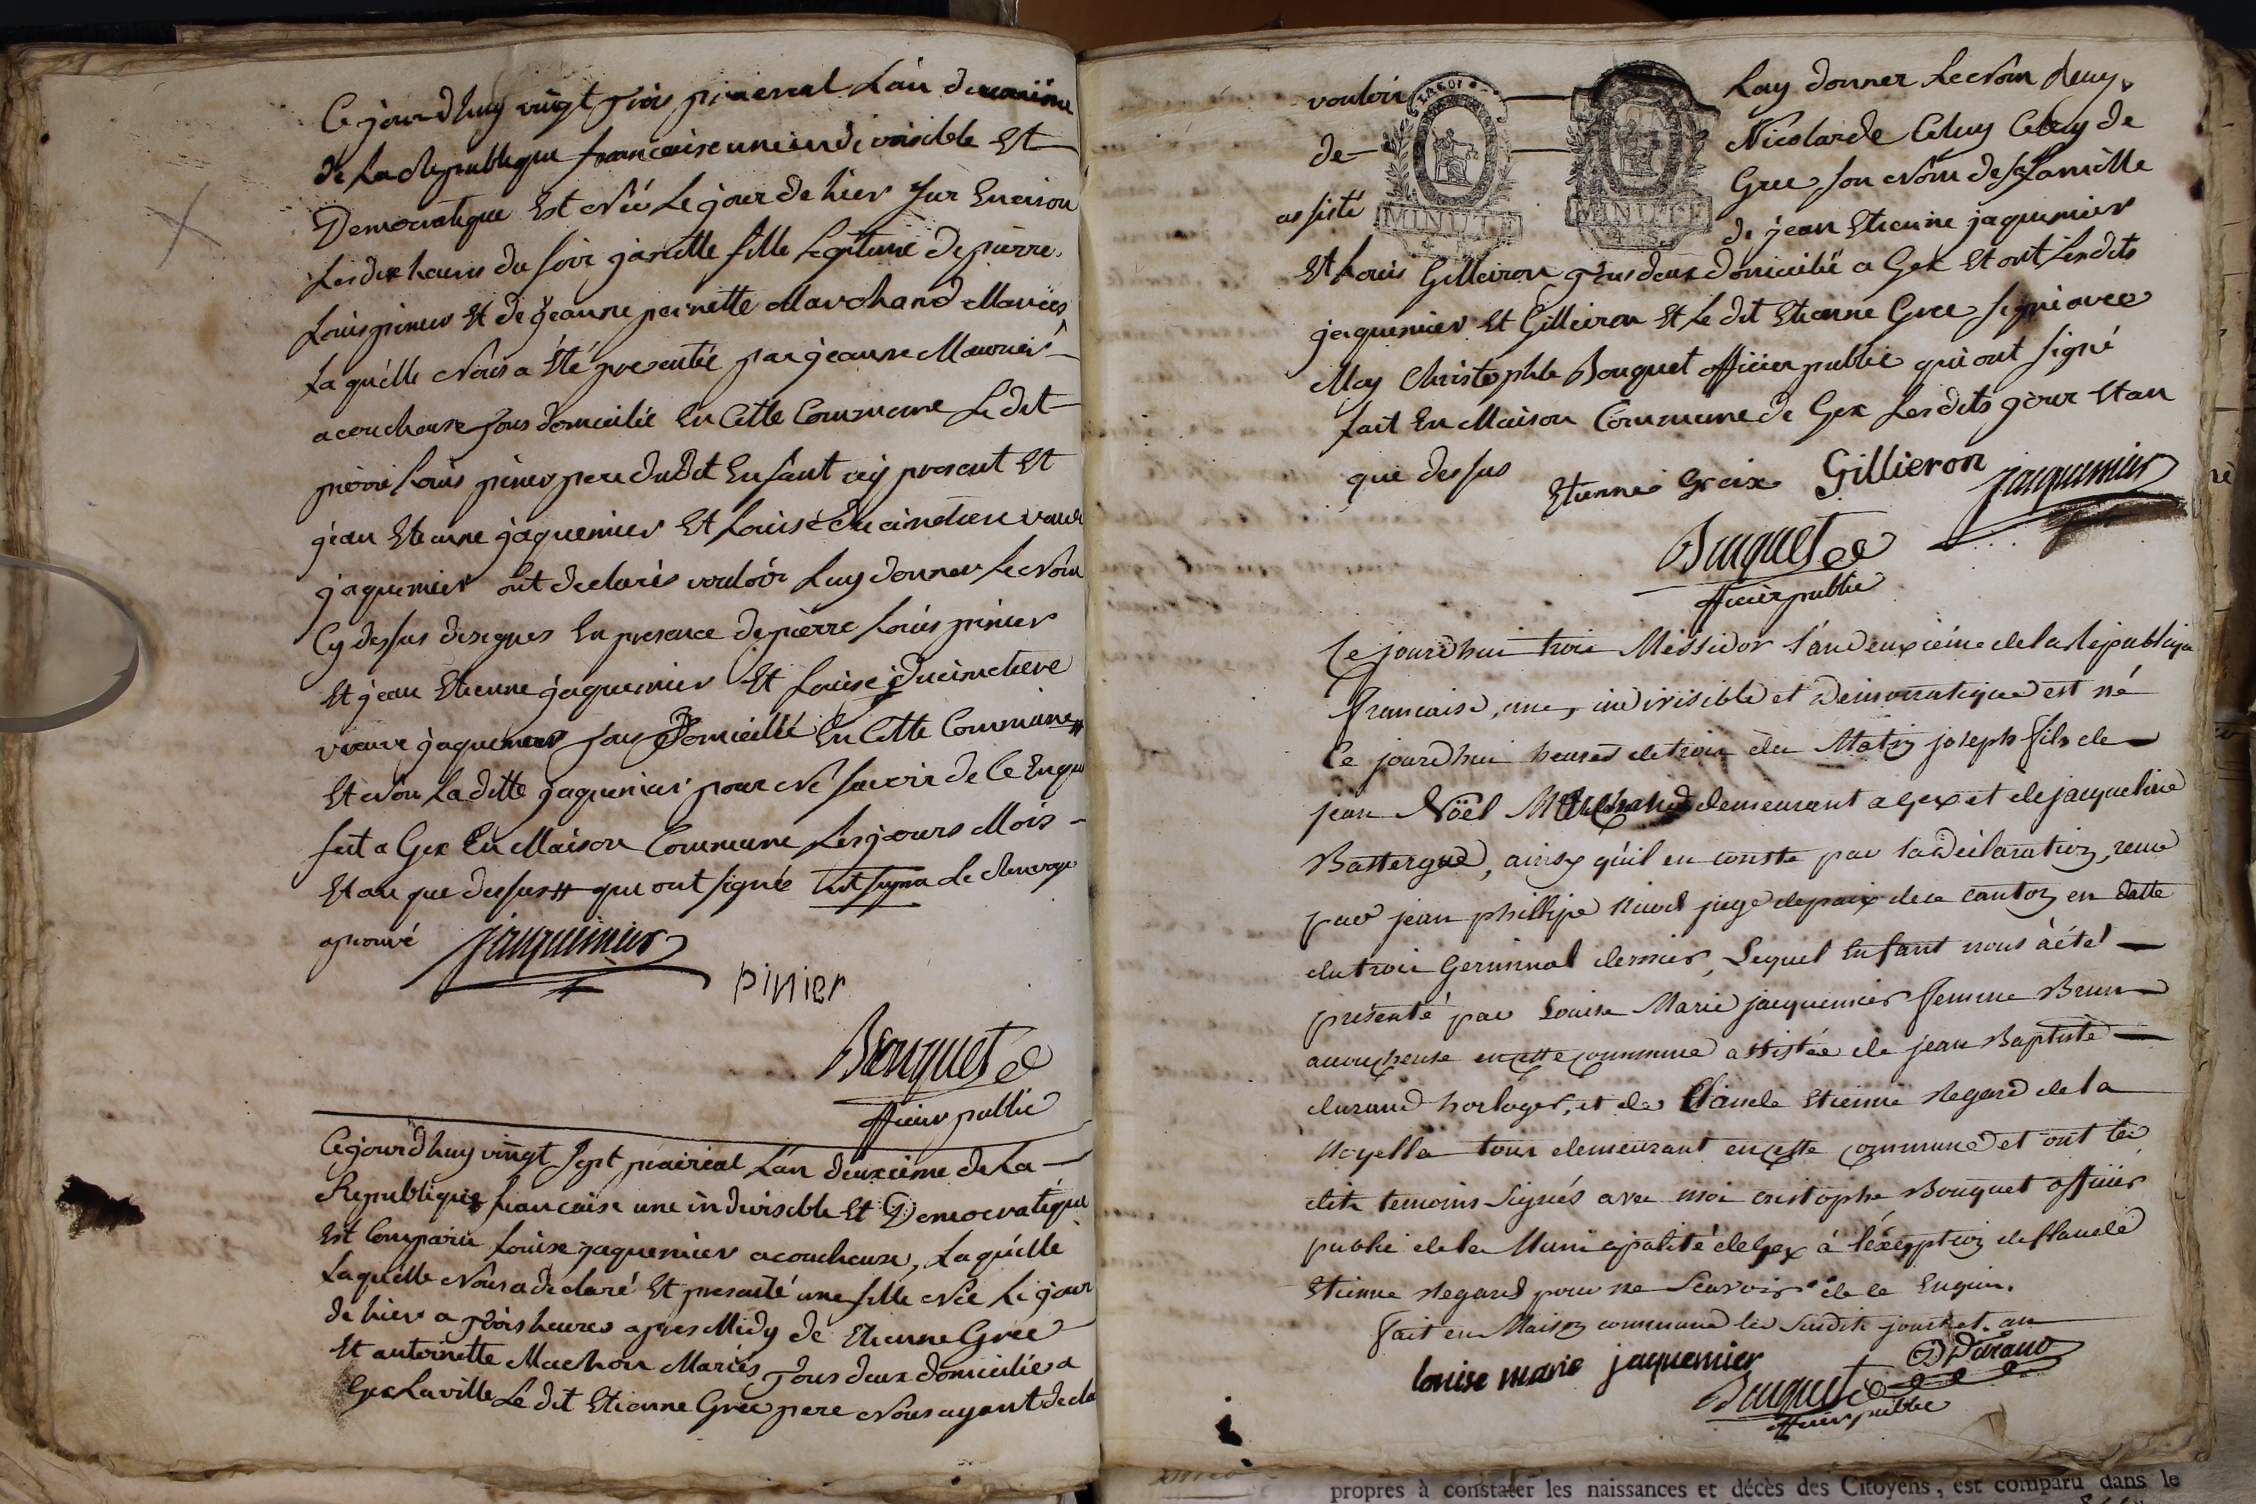 Ce jourdhuy vingt trois prairial L'an deuxiéme
de La Republique francaise une indivisible Et
Democratique Est Née Le jour de hier sur Environ
Les dix heures du soir janette fille Legitime de pierre
Louis pinier Et de jeanne pernette Marchand Mariés
Laquelle Nous a Eté presentée par jeanne
acoucheuse tous domiciliée En Cette Commune Le dit
pierre Louis pinier pere dudit Enfant icy present Et
jean Etienne jaquemier Et Louise Ducimetiere veuve
jaquemier ont declarés vouloir Luy donner Le Nom
Cy dessus designes En presence de pierre Louis pinier
Et jean Etienne jaquemier Et Louise Ducimetiere
veuve jaquemier tous Domicillié En Cette Commune #
Et Non Laditte jaquemier pour Ne savoir de Ce Enquis
fait a Gex En Maison Commune Les jours Mois
Et an que dessus # qui ont signés Le Renvoye
aprouvé jacquemier
pinier
Bouquet
officier public
Ce jourd'huy vingt sept prairial L'an deuxiéme de La
Republique francaise une indivisible Et Democratique
Est Comparu Louise jaquemier acoucheuse, Laquelle
Laquelle Nous a declaré Et presenté une fille Née Le jour
de hier a trois heures apres Midy de Etienne Gree
Et antoinette Machon Mariés, tous deux domiciliés a
Gex La ville Le dit Etienne Gree pere Nous ayant decla
vouloir Luy donner Le Nom
de Nicolarde Celuy de
assisté Gree son Nom de famille
de jean Etienne jaquemier
MINUTE MINUTE
Et Louis Gilleiron tous deux domicilié a Gex Et ont Lesdits
jaquemier Et Gilleiron Et Le dit Etienne Gree signé avec
Moy Christophle Bouquet officier public qui ont signé
fait En Maison Commune de Gex Lesdits jour Et an
que dessus
Etienne Greix Gillieron jacquemier
Bouquet
officier public
Ce jourdhui trois Messidor l'an deuxieme de la Republique
francaise, une, indivisible et Democratique est né
Ce jourdhui heures de trois du Matin joseph fils de
jean Noël Marchand demeurant a Gex et de jacqueline
Bastergue, ainsy qu'il en conste par la déclaration, reçue
par jean phillipe Nicod juge de paix de ce canton en datte
du trois Germinal dernier, Lequel Enfant nous à été
présenté par Louise Marie jacquemier femme Brun
accoucheuse en cette commune assistée de jean Baptiste
durand horloger, et de Claude Etienne Regard de la
Noyella tous demeurant en cette commune et ont les
dits temoins Signés avec moi cristophe Bouquet officier
public de la Municipalité de Gex à l'exception de Claude
Etienne Regard pour ne Scavoir de ce Enquis.
fait en Maison commune les susdits jours et an
louise marie jaquemier Durand
Bouquet
officier public
propres à constater les naissances et décès des Citoyens, est comparu dans le